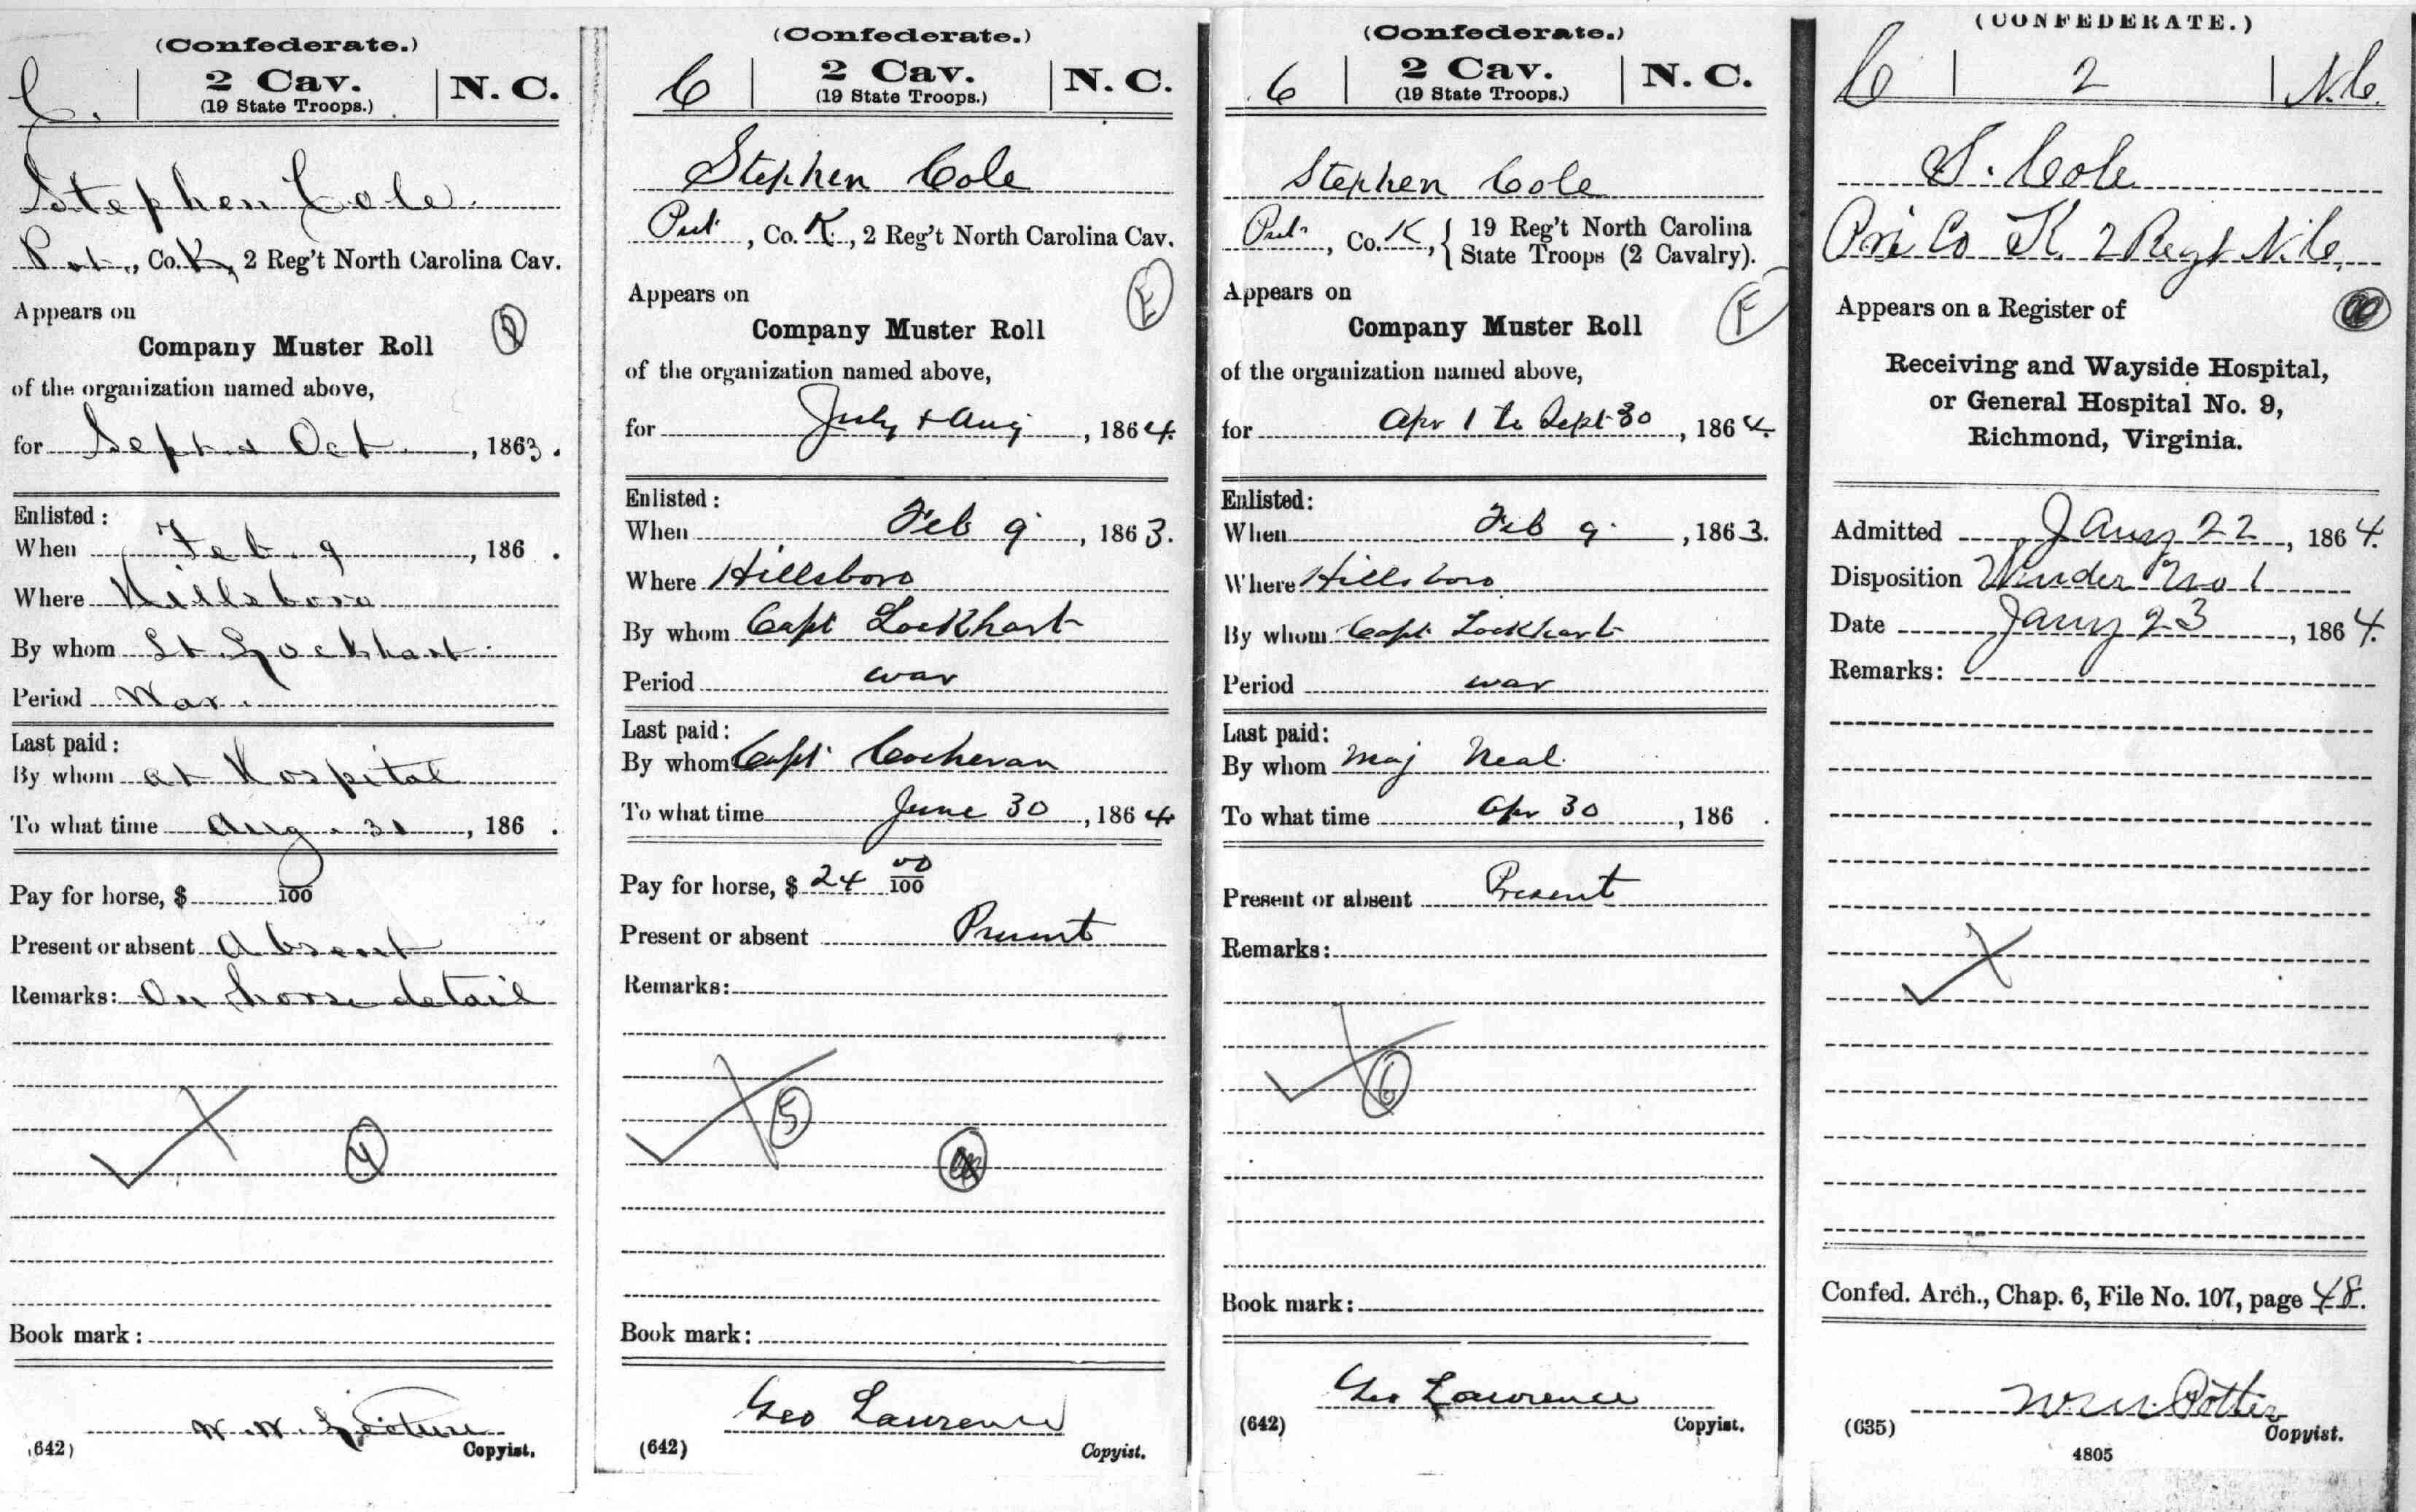 (Confederate.)
C. | 2 Cav. | N. C.
(19 State Troops.)
Stephen Cole
Pvt., Co. K, 2 Reg't North Carolina Cav.
Appears on
Company Muster Roll
of the organization named above,
for Sept & Oct, 1863.
Enlisted:
When Feb. 9, 186 .
Where Hillsboro
By whom Lt. Lockhart
Period War.
Last paid:
By whom at Hospital
To what time Aug. 31, 186 .
Pay for horse, $ 100
Present or absent Absent
Remarks: On horse detail
4
Book mark:
W. W.
(642) Copyist.
(Confederate.)
C | 2 Cav. | N. C.
(19 State Troops.)
Stephen Cole
Pvt, Co. K, 2 Reg't North Carolina Cav.
E
Appears on
Company Muster Roll
of the organization named above,
for July & Aug, 1864.
Enlisted:
When Feb 9, 1863.
Where Hillsboro
By whom Capt Lockhart
Period war
Last paid:
By whom Capt Cocheran
To what time June 30, 1864
Pay for horse, $ 24 00/100
Present or absent Present
Remarks:
5
Book mark:
Geo Lawrence
(642) Copyist.
(Confederate.)
C | 2 Cav. | N. C.
(19 State Troops.)
Stephen Cole
Pvt, Co. K, { 19 Reg't North Carolina
State Troops (2 Cavalry).
Appears on
F
Company Muster Roll
of the organization named above,
for Apr 1 to Sept 30, 1864.
Enlisted:
When Feb 9, 1863.
Where Hillsboro
By whom Capt Lockhart
Period war
Last paid:
By whom Maj Neal
To what time Apr 30, 186 .
Present or absent Present
Remarks:
6
Book mark:
Geo Lawrence
(642) Copyist.
(CONFEDERATE.)
C | 2 | N.C.
S. Cole
Pri Co K. 2 Regt N.C.
Appears on a Register of
Receiving and Wayside Hospital,
or General Hospital No. 9,
Richmond, Virginia.
Admitted Jany 22, 1864.
Disposition Winder No 1
Date Jany 23, 1864.
Remarks:
Confed. Arch., Chap. 6, File No. 107, page 48.
Potter
(635) Copyist.
4805